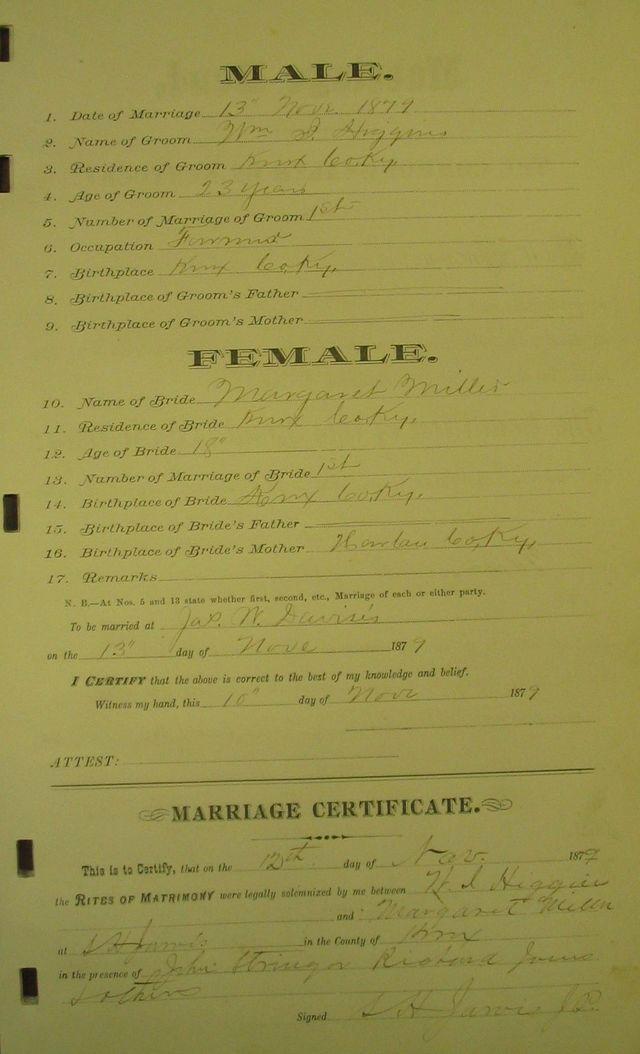 MALE.
1. Date of Marriage 13" Nove 1879
2. Name of Groom Wm S. Higgins
3. Residence of Groom Knx Co Ky,
4. Age of Groom 23 years
5. Number of Marriage of Groom 1st
6. Occupation
7. Birthplace Knx Co, Ky,
8. Birthplace of Groom's Father
9. Birthplace of Groom's Mother
FEMALE.
10. Name of Bride Margaret Miller
11. Residence of Bride Knx Co Ky,
12. Age of Bride 18"
13. Number of Marriage of Bride 1st
14. Birthplace of Bride Knx Co Ky,
15. Birthplace of Bride's Father
16. Birthplace of Bride's Mother Harlan Co, Ky,
17. Remarks
N. B.—At Nos. 5 and 13 state whether first, second, etc., Marriage of each or either party.
To be married at Jas. W. Davises
on the 13" day of Nove 1879
I CERTIFY that the above is correct to the best of my knowledge and belief.
Witness my hand, this 10" day of Nove 1879
ATTEST:
MARRIAGE CERTIFICATE.
This is to Certify, that on the day of Nov. 1879
the RITES OF MATRIMONY were legally solemnized by me between Higgins
and Margaret Miller
at S H Jarvis in the County of Knx
in the presence of John Stringer Richard Jones
& others
Signed S H Jarvis J.P.